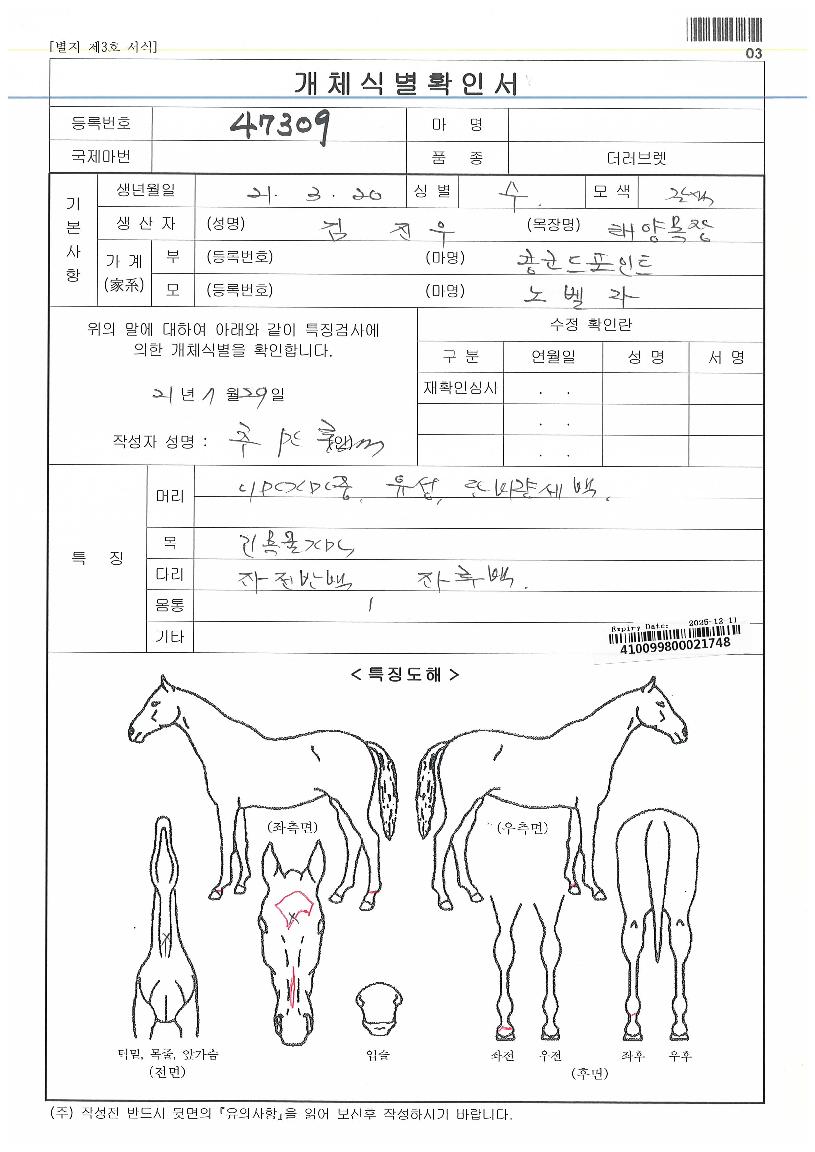 [별지 제3호 서식]
03
개체식별확인서
등록번호 47309 마 명
국제마번 품 종 더러브렛
기본사항
생년월일 21. 3. 20 성 별 수. 모 색 갈색
생 산 자 (성명) 김 진 우 (목장명) 태양목장
가 계 (家系) 부 (등록번호) (마명) 콩코드포인트
모 (등록번호) (마명) 노 벨 라
위의 말에 대하여 아래와 같이 특징검사에
의한 개체식별을 확인합니다.
21 년 7 월 29 일
작성자 성명 :
수정 확인란
구 분 연월일 성 명 서 명
재확인심시 . .
. .
. .
특 징
머리 유성,
목
다리 좌전반백 좌후백.
몸통
기타
Expiry Date: 2025-12-11
410099800021748
< 특징도해 >
(좌측면) (우측면)
턱밑, 목줄, 앞가슴
(전면)
입술
좌전 우전 좌후 우후
(후면)
(주) 작성전 반드시 뒷면의 『유의사항』을 읽어 보신후 작성하시기 바랍니다.